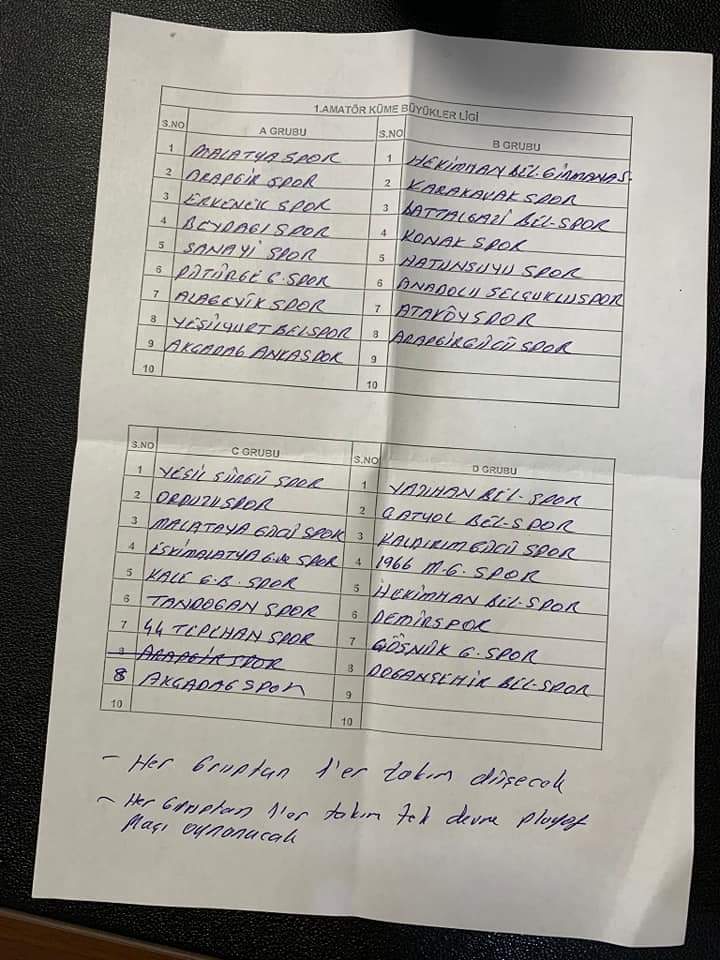 1.AMATÖR KÜME BÜYÜKLER LİGİ
S.NO A GRUBU
1 MALATYA SPOR
2 ARAPGİR SPOR
3 ERKENEK SPOR
4 BEYDAGI SPOR
5 SANAYİ SPOR
6 PÜTÜRGE G. SPOR
7 ALAGEYİK SPOR
8 YEŞİLYURT BELSPOR
9 AKGADAG ANKASPOR
10
S.NO B GRUBU
1 HEKİMHAN BEL. GİRMANAS.
2 KARAKAVAK SPOR
3 BATTALGAZİ BEL-SPOR
4 KONAK SPOR
5 HATUNSUYU SPOR
6 ANADOLU SELÇUKLUSPOR
7 ATAKÖYSPOR
8 ARAPGİRGÜCÜ SPOR
9
10
S.NO C GRUBU
1 YEŞİL SÜRGÜ SPOR
2 ORDUZUSPOR
3 MALATAYA GÜCÜ SPOR
4 ESKİMALATYA SPOR
5 KALE G.B. SPOR
6 TANDOGAN SPOR
7 44 TEPEHAN SPOR
8 ARAPGİR SPOR
8 AKGADAG SPOR
10
S.NO D GRUBU
1 YAZIHAN BEL-SPOR
2 QATYOL BEL-SPOR
3 KALDIRIM GÜCÜ SPOR
4 1966 M.G. SPOR
5 HEKİMHAN BEL-SPOR
6 DEMİRSPOR
7 GÖSNÜK G. SPOR
8 DOGANŞEHİR BEL-SPOR
9
10
- Her Gruptan 1'er takım düşecek
- Her Gruptan 1'er takım tek devre playof
Maçı oynanacak